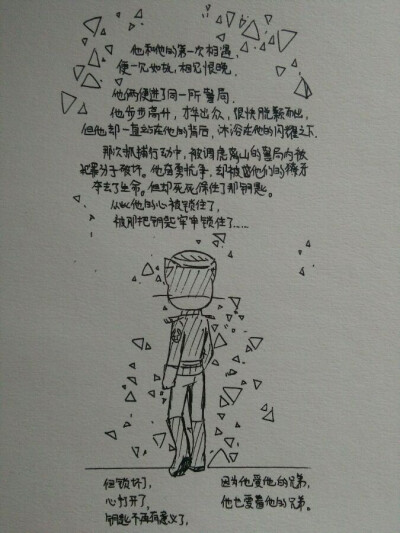 他和他的第一次相遇,
便一见如故,相见恨晚.
他俩便进了同一所警局.
他步步高升,才华出众,很快脱颖而出,
但他却一直站在他的背后,沐浴在他的闪耀之下.
那次抓捕行动中,被调虎离山的警局内被
犯罪分子破坏。他奋勇抗争,却被
夺去了生命。但却死死保住了那钥匙。
从此他的心被锁住了,
被那把钥匙牢牢锁住了……
但锁坏了,
心打开了,
钥匙不再有意义了,
因为他爱他的兄弟,
他也爱着他的兄弟。